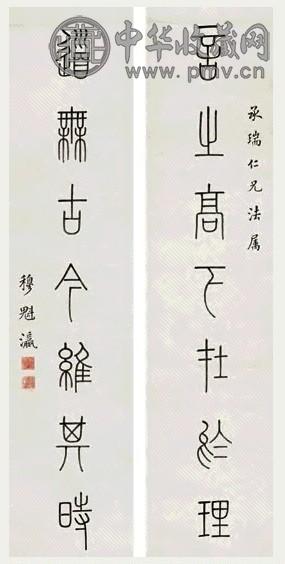 中华收藏网
www.pmv.cn
承瑞仁兄法属
言之高下在於理
道無古今維其時
穆魁瀛